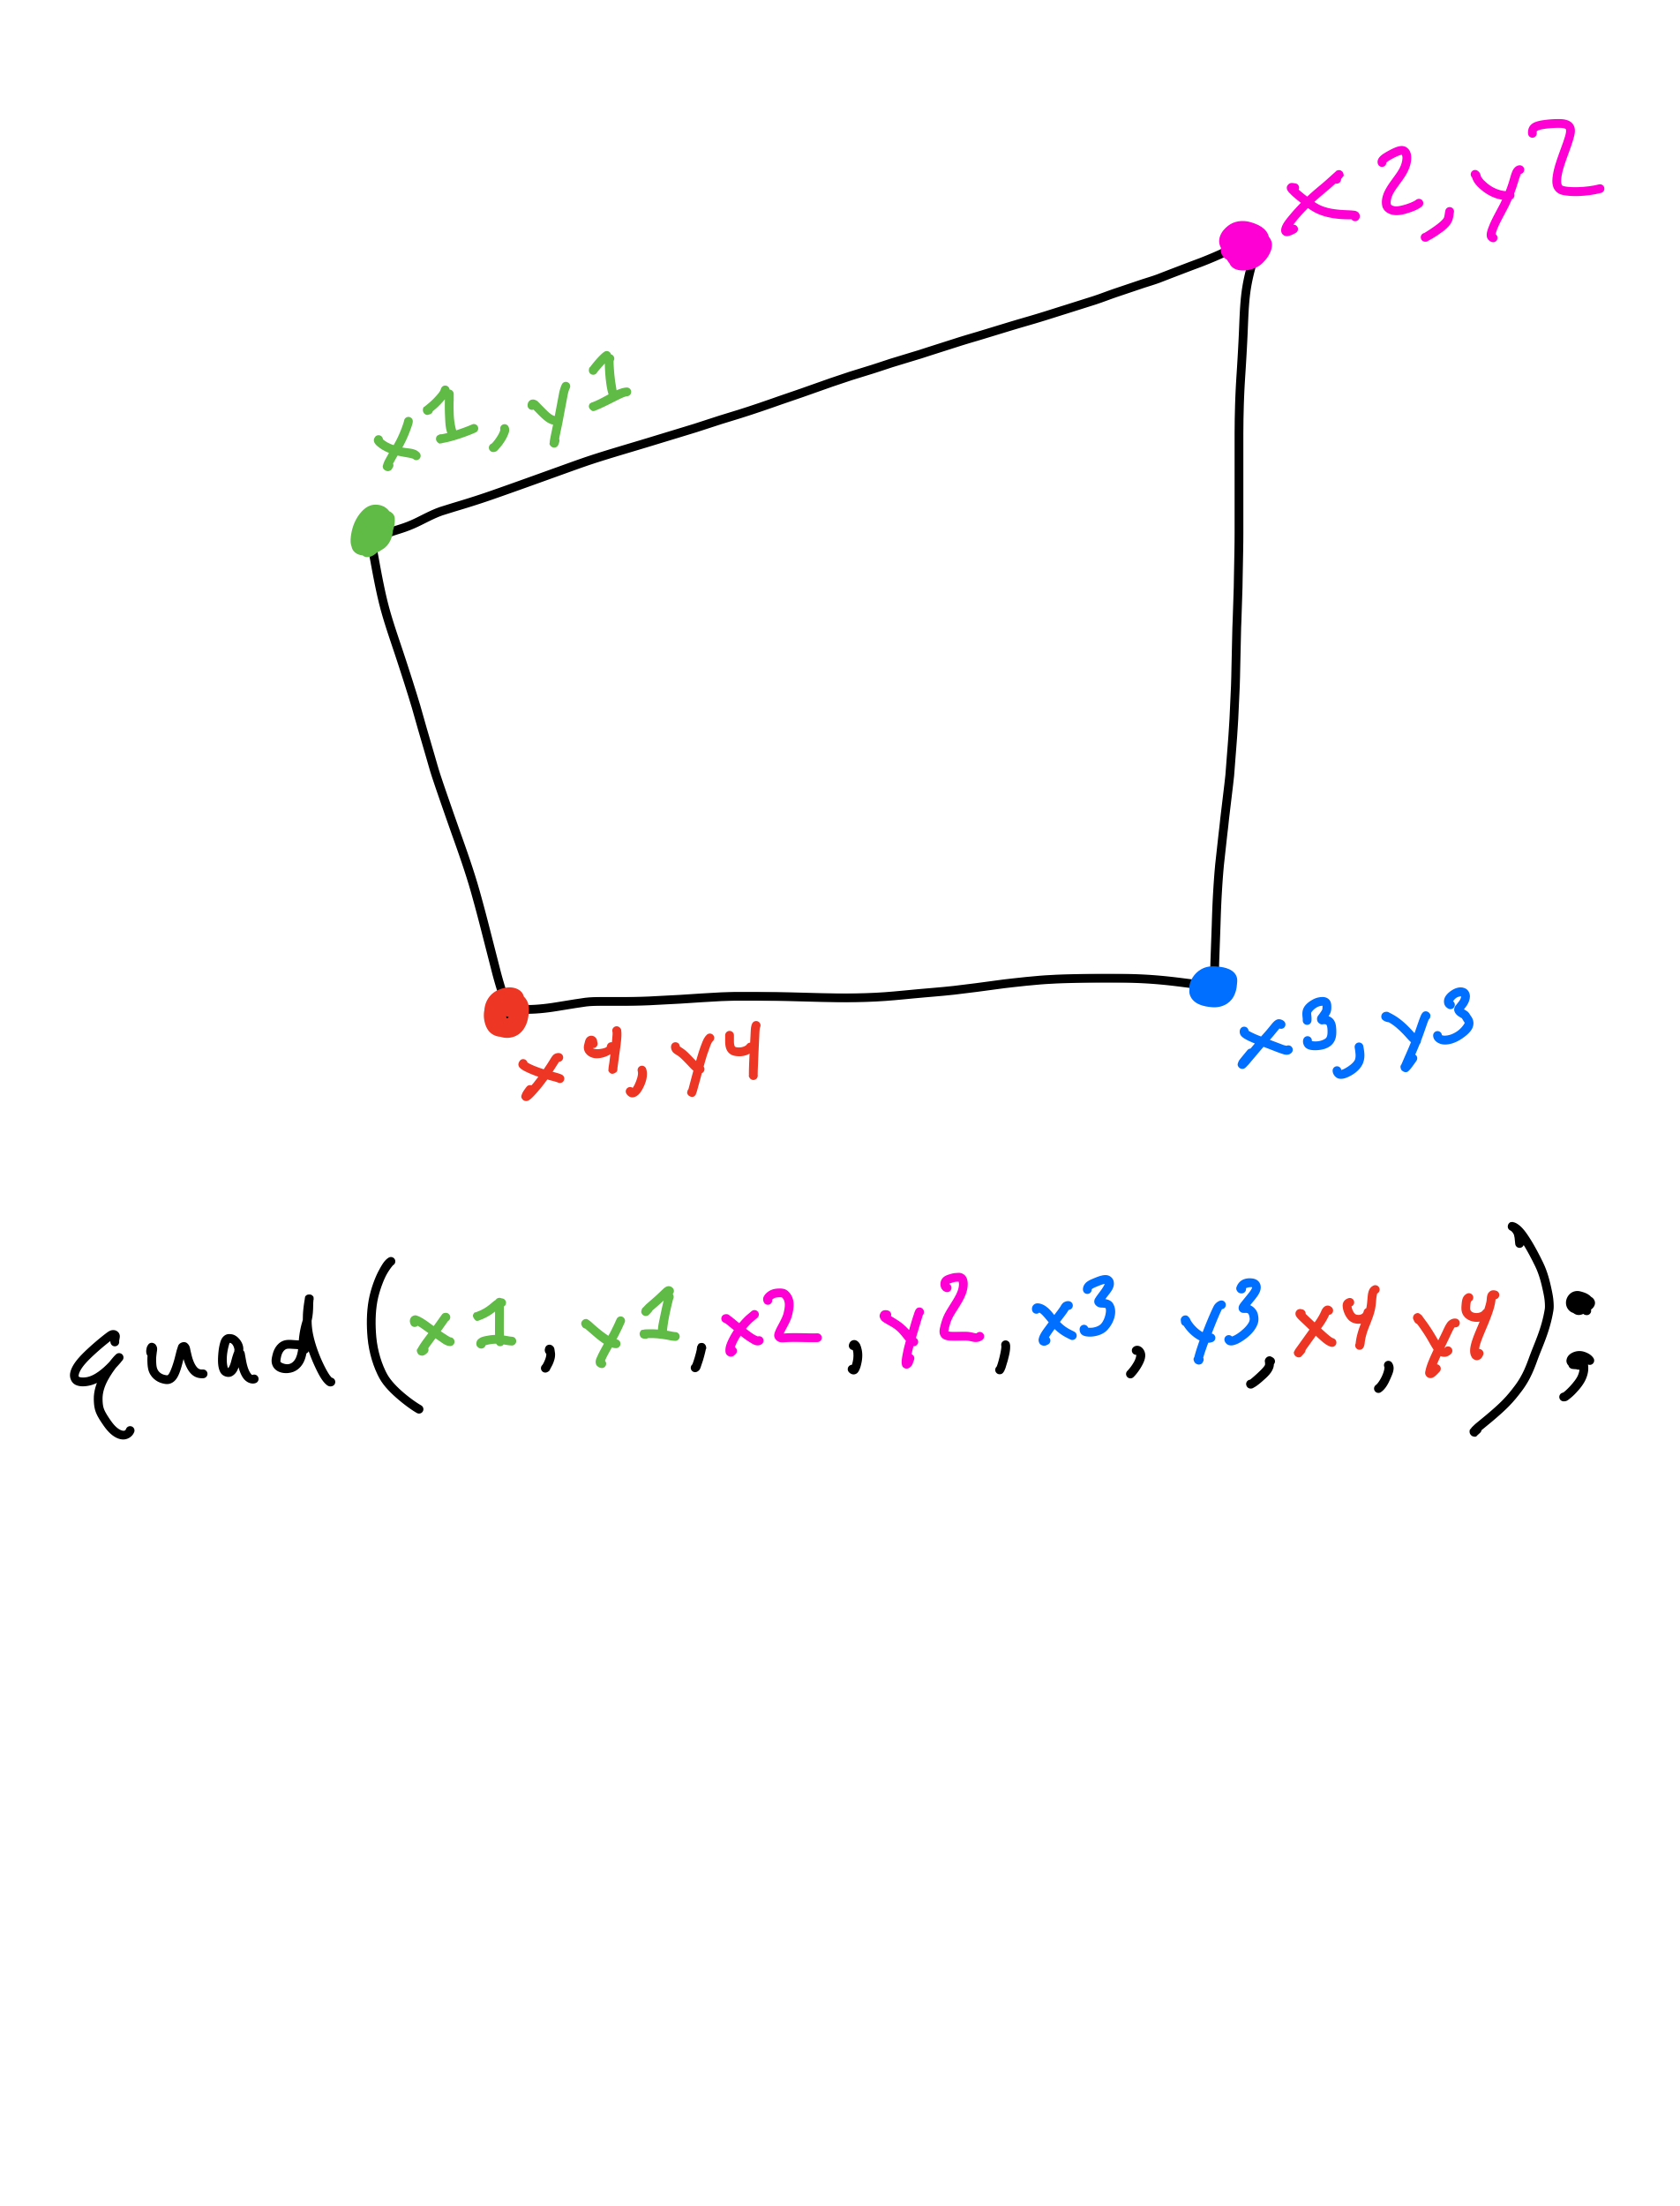 x2, y2
x1, y1
x3, y3
x4, y4
quad(x1, y1, x2, y2, x3, y3, x4, y4);